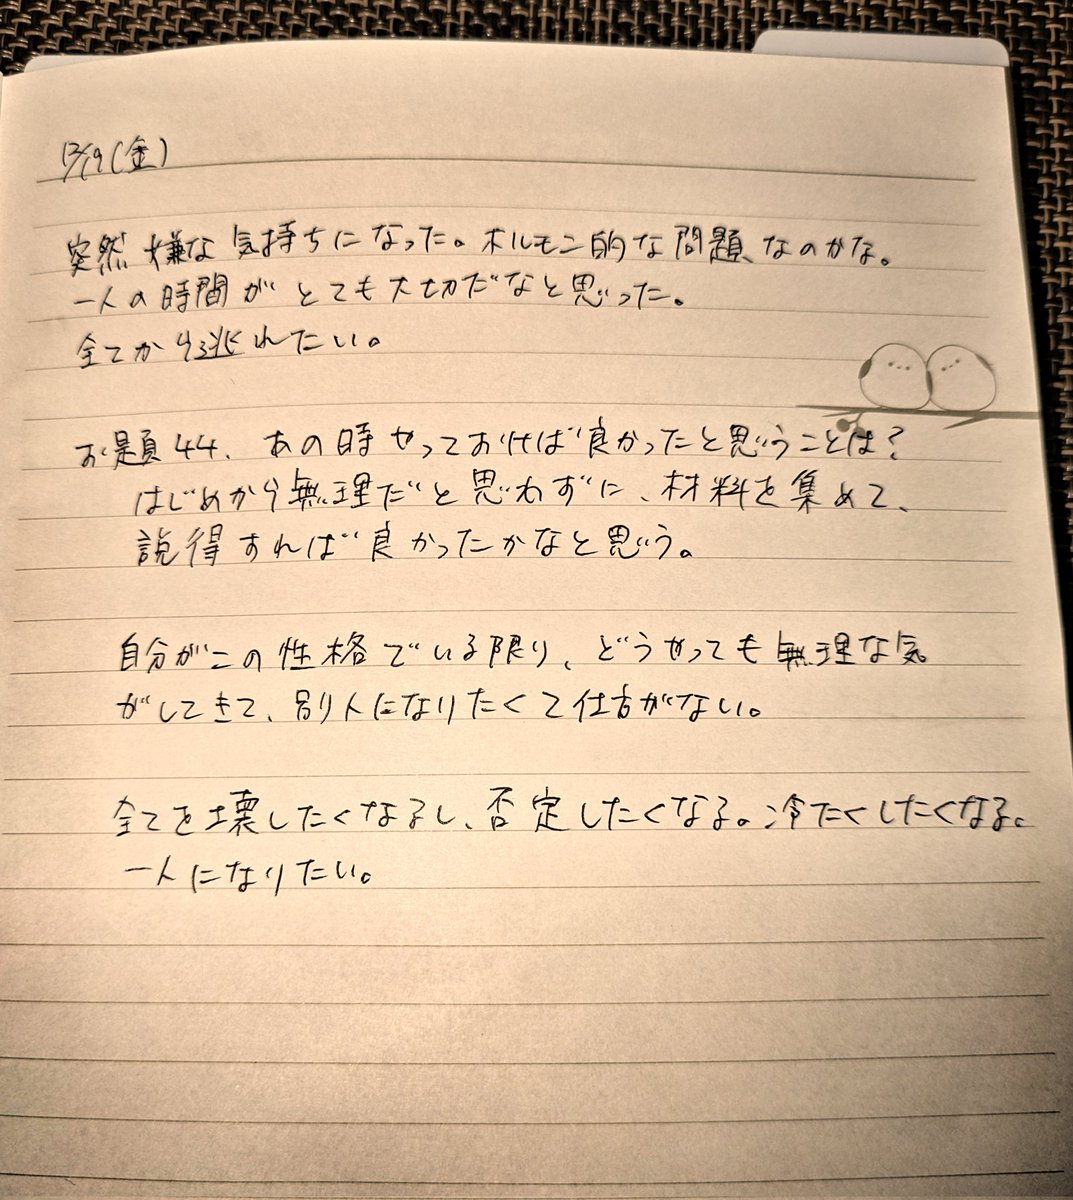 12/19(金)
突然嫌な気持ちになった。ホルモン的な問題なのかな。
一人の時間がとても大切だなと思った。
全てから逃れたい。
お題44、あの時やっておけば良かったと思うことは？
はじめから無理だと思わずに、材料を集めて、
説得すれば良かったかなと思う。
自分がこの性格でいる限り、どうやっても無理な気
がしてきて、別人になりたくて仕方がない。
全てを壊したくなるし、否定したくなる。冷たくしたくなる。
一人になりたい。